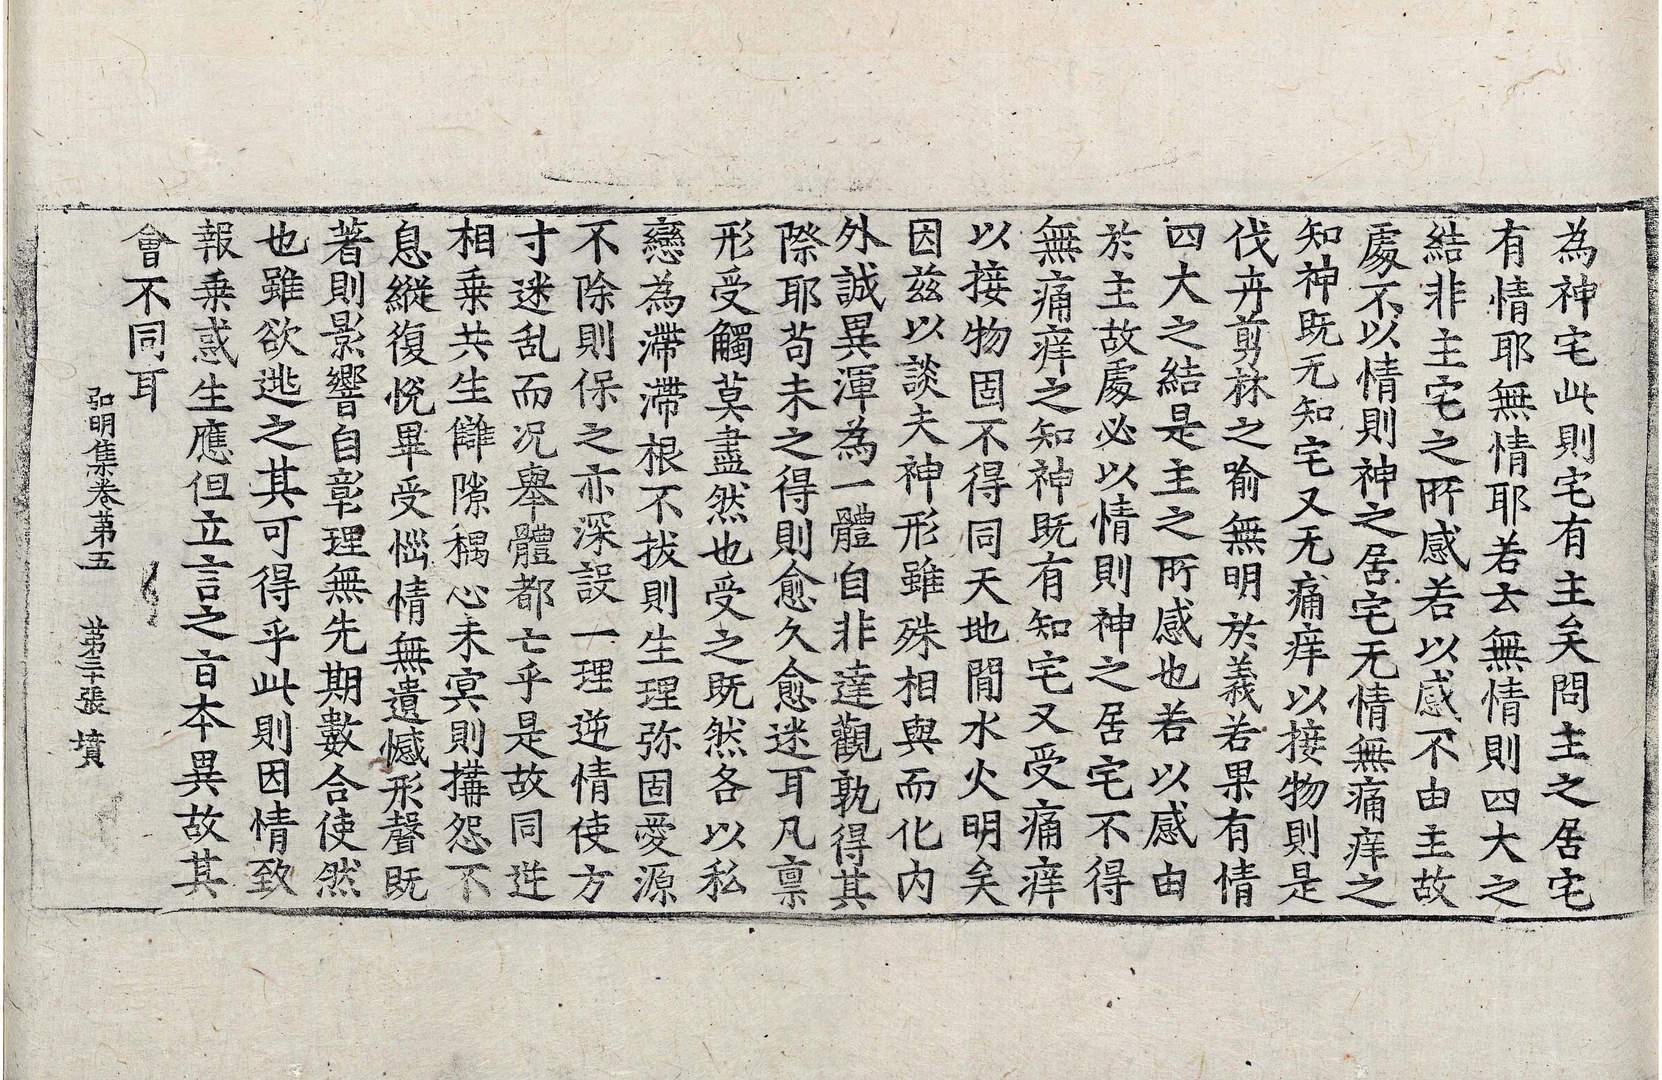 為神宅此則宅有主矣問主之居宅
有情耶無情耶若云無情則四大之
結非主宅之所感若以感不由主故
處不以情則神之居宅无情無痛痒之
知神既无知宅又无痛痒以接物則是
伐卉剪林之喻無明於義若果有情
四大之結是主之所感也若以感由
於主故處必以情則神之居宅不得
無痛痒之知神既有知宅又受痛痒
以接物固不得同天地間水火明矣
因茲以談夫神形雖殊相與而化内
外誠異渾為一體自非達觀孰得其
際耶苟未之得則愈久愈迷耳凡禀
形受觸莫盡然也受之既然各以私
戀為滯滯根不拔則生理弥固愛源
不除則保之亦深設一理逆情使方
寸迷乱而况舉體都亡乎是故同逆
相乗共生讎隙禍心未宴則搆怨不
息縱復恱畢受惱情無遺憾形聲既
著則影響自彰理無先期數合使然
也雖欲逃之其可得乎此則因情致
報乗惑生應但立言之旨本異故其
會不同耳
弘明集卷第五 第三十張 墳